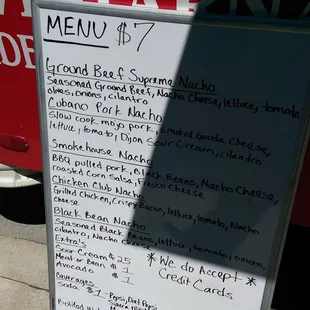 MENU $7
Ground Beef Supreme Nacho
Seasoned Ground Beef, Nacho Cheese, lettuce, tomato
onions, cilantro
Cubano Pork Nacho
Slow cook mojo pork, Smoked Gouda cheese,
lettuce, tomato, Dijon Sour Cream, cilantro
Smokehouse Nacho
BBQ pulled pork, Black Beans, Nacho Cheese,
roasted Corn Salsa, Fresco Cheese
Chicken Club Nacho
Grilled chicken, Crispy Bacon, lettuce, tomato, Nacho
Cheese
Black Bean Nacho
Seasoned Black Beans, lettuce, tomato, onions,
cilantro, Nacho Cheese
Extra's
Sour Cream $.25
Meat or Bean $1
Avocado $1
* We do Accept *
Credit Cards
Beverages
Soda $1
Pepsi, Diet Pepsi